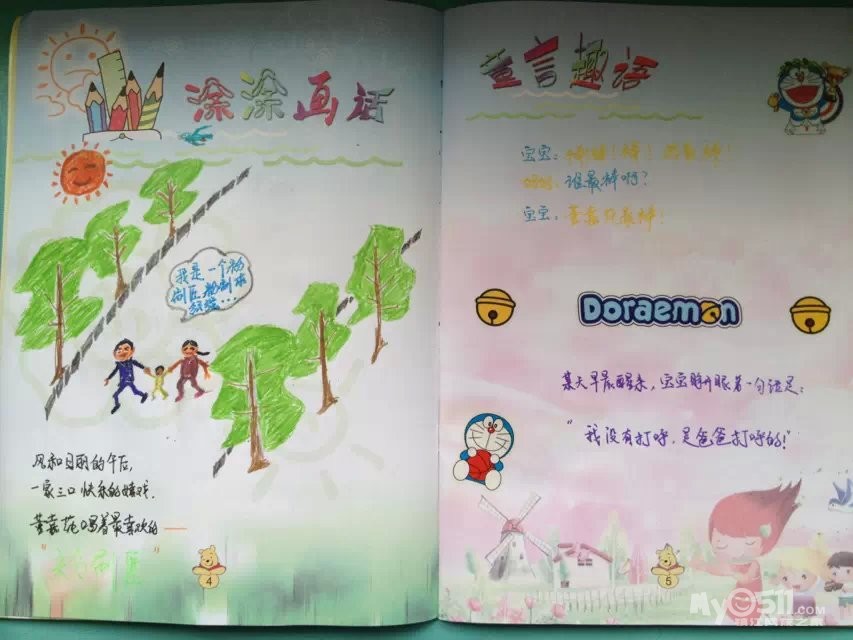 涂涂画话
我是一个粉
刷匠粉刷本
领强...
风和日丽的午后,
一家三口快乐的嬉戏.
董嘉 唱着最喜欢的
"粉刷匠"
4
童言趣语
宝宝:
妈妈:谁最棒啊?
宝宝:董嘉 最棒!
Doraemon
某天早晨醒来,宝宝睁开眼第一句话是:
"我没有打呼,是爸爸打呼的!"
5
My0511.com